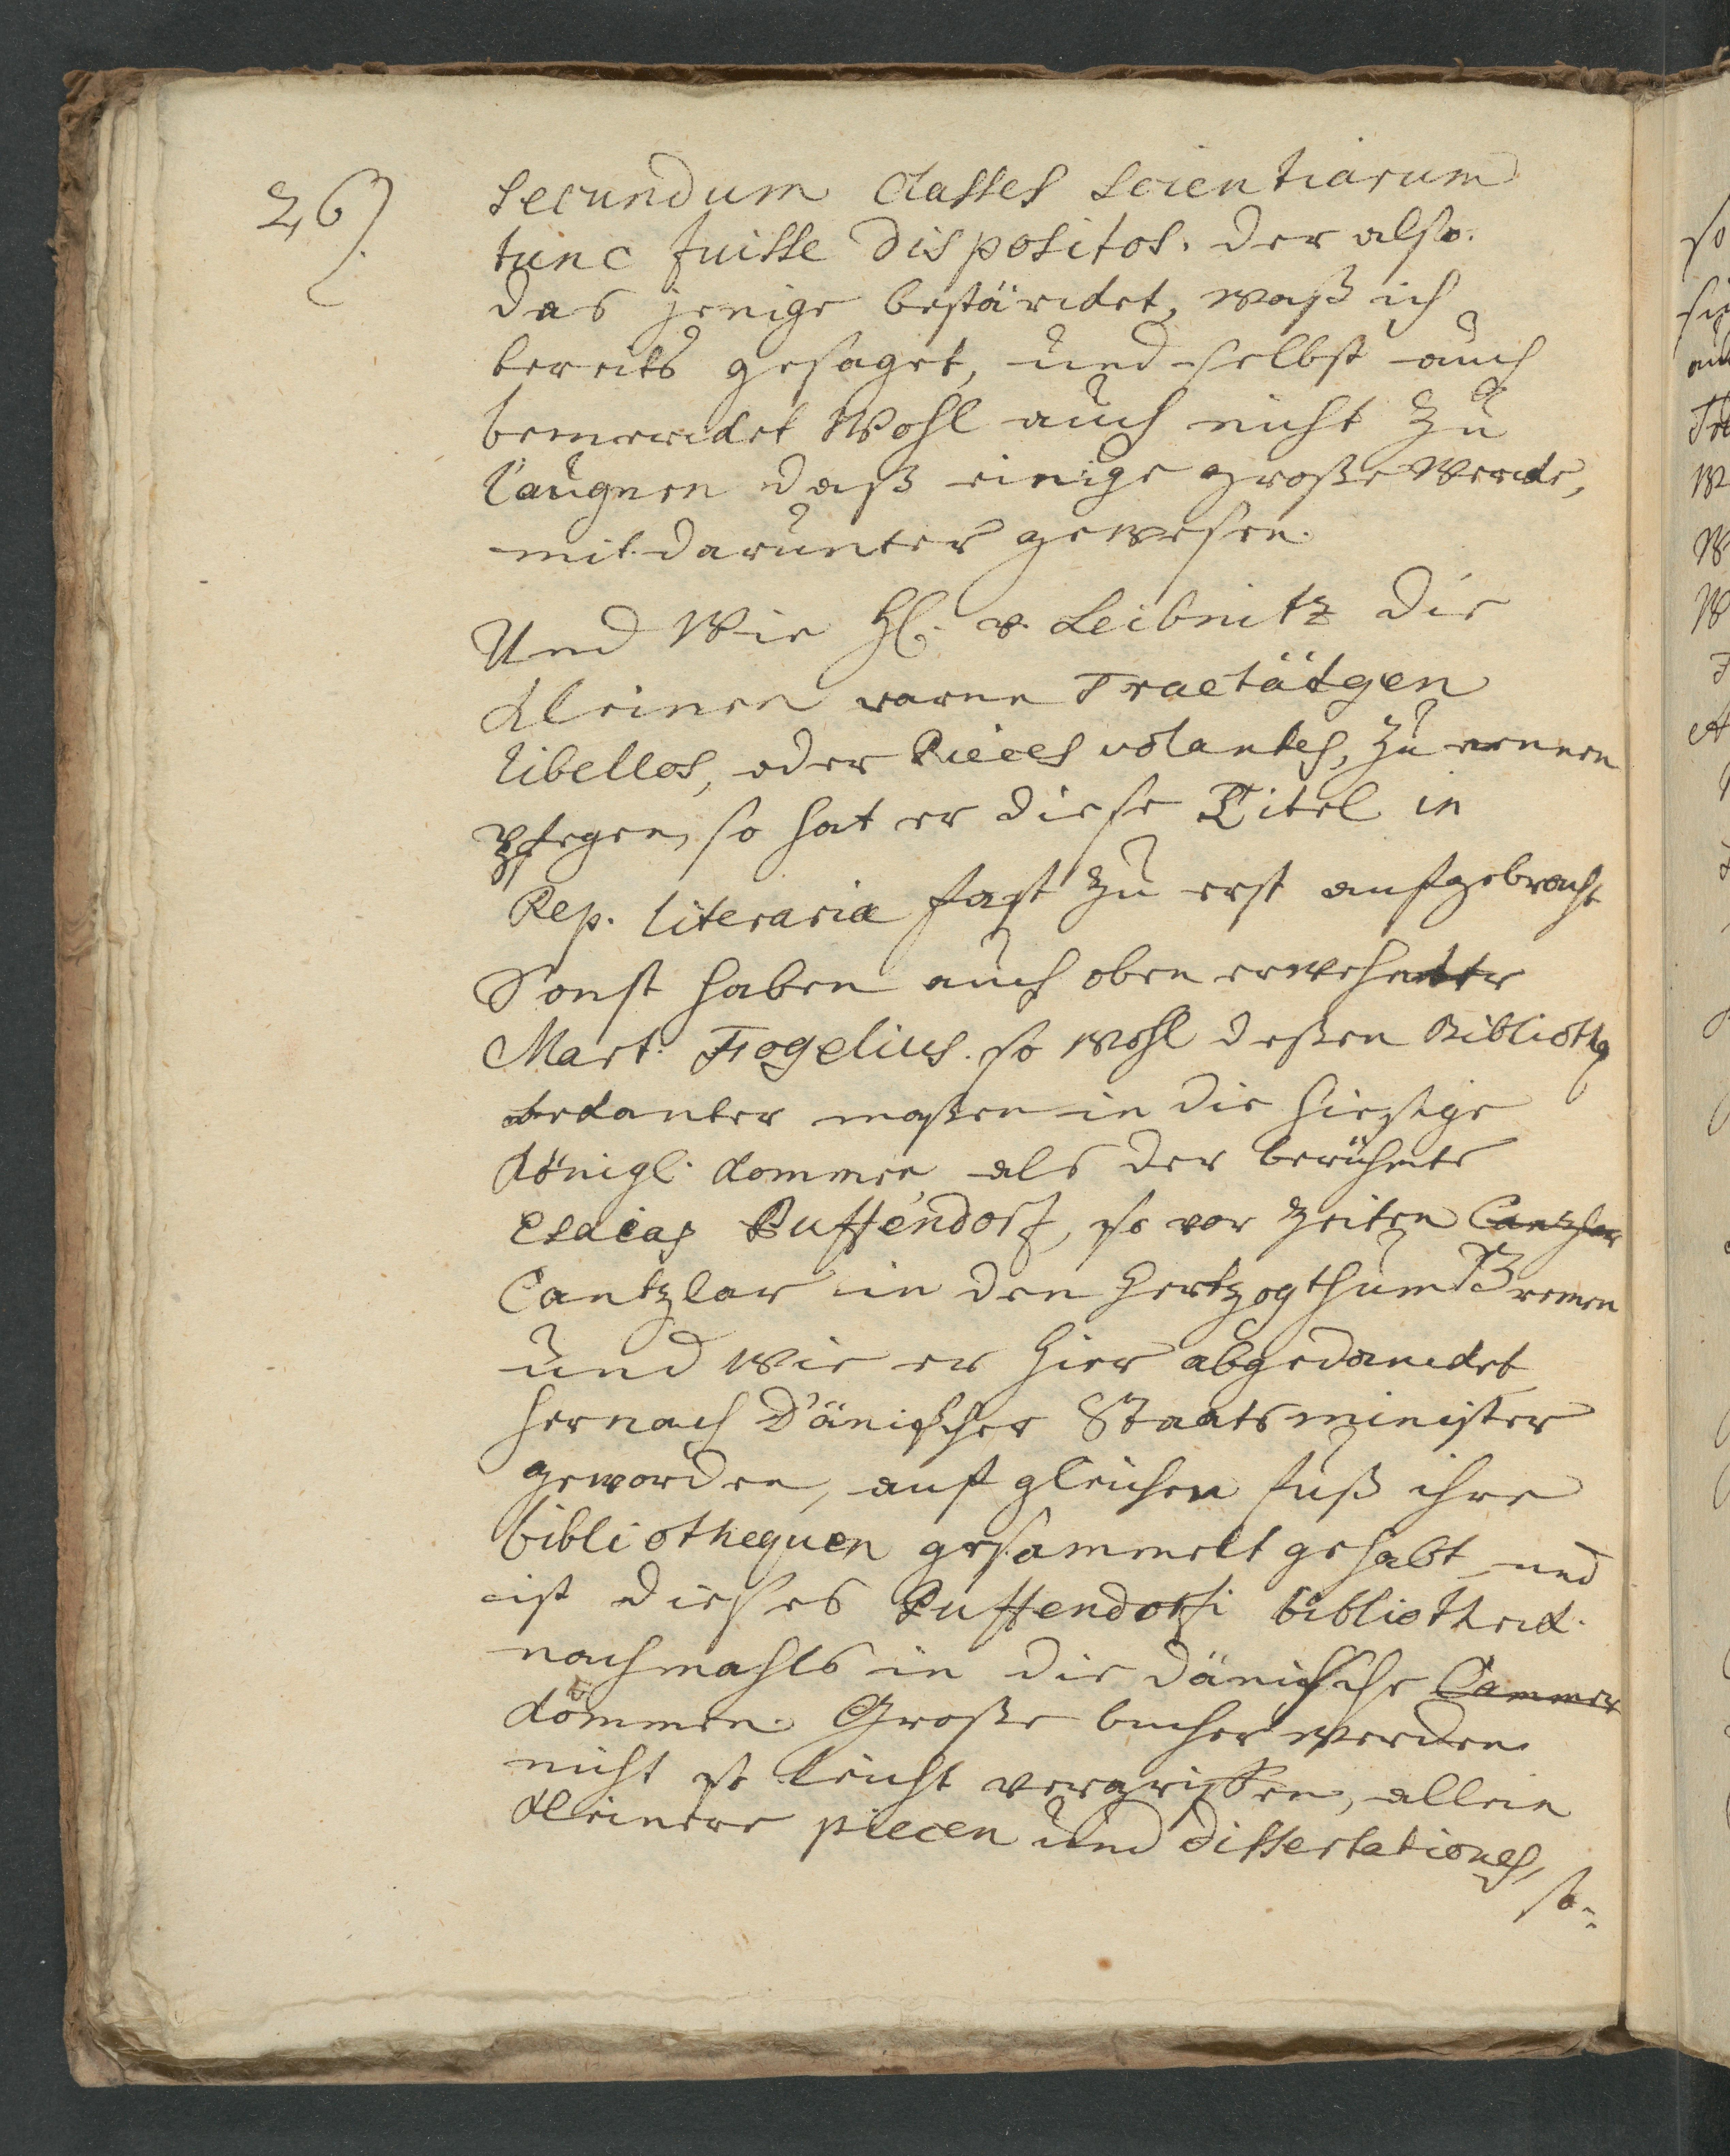 26).
secundum classes scientiarum
tunc fuisse dispositos. der also
das jenige bestärcket, waß ich
bereits gesaget, und selbst auch
bemercket Wohl auch nicht zu
läugnen daß einige große Wercke,
mit darunter gewesen.
Und Wie H. v. Leibnitz die
kleinen rare Tractätgen
libellos, oder Pieces volantes, zu nennen
pflegen, so hat er diese Titel in
Rep. literaria fast zu erst aufgebracht
Sonst haben auch oben erwehnter
Mart. Fogelius. so wohl deßen Biblioth
bekanter maßen in die hiesige
königl. kommen als der berühmte
Esaias Puffendorf, so vor Zeiten Cantzlar
Cantzlar in den Hertzogthum Bremen
und wie er hier abgedancket
hernach Dänischer Staatsminister
geworden, auf gleichen fuß ihre
bibliothequen gesammelt gehabt und
ist dieses Puffendorfi bibliotheck.
nachmahls in die dänische Cammer
kommen. Große bucher werden
nicht so leicht vergriffen, allein
kleinere piecen und dissertationes,
so-